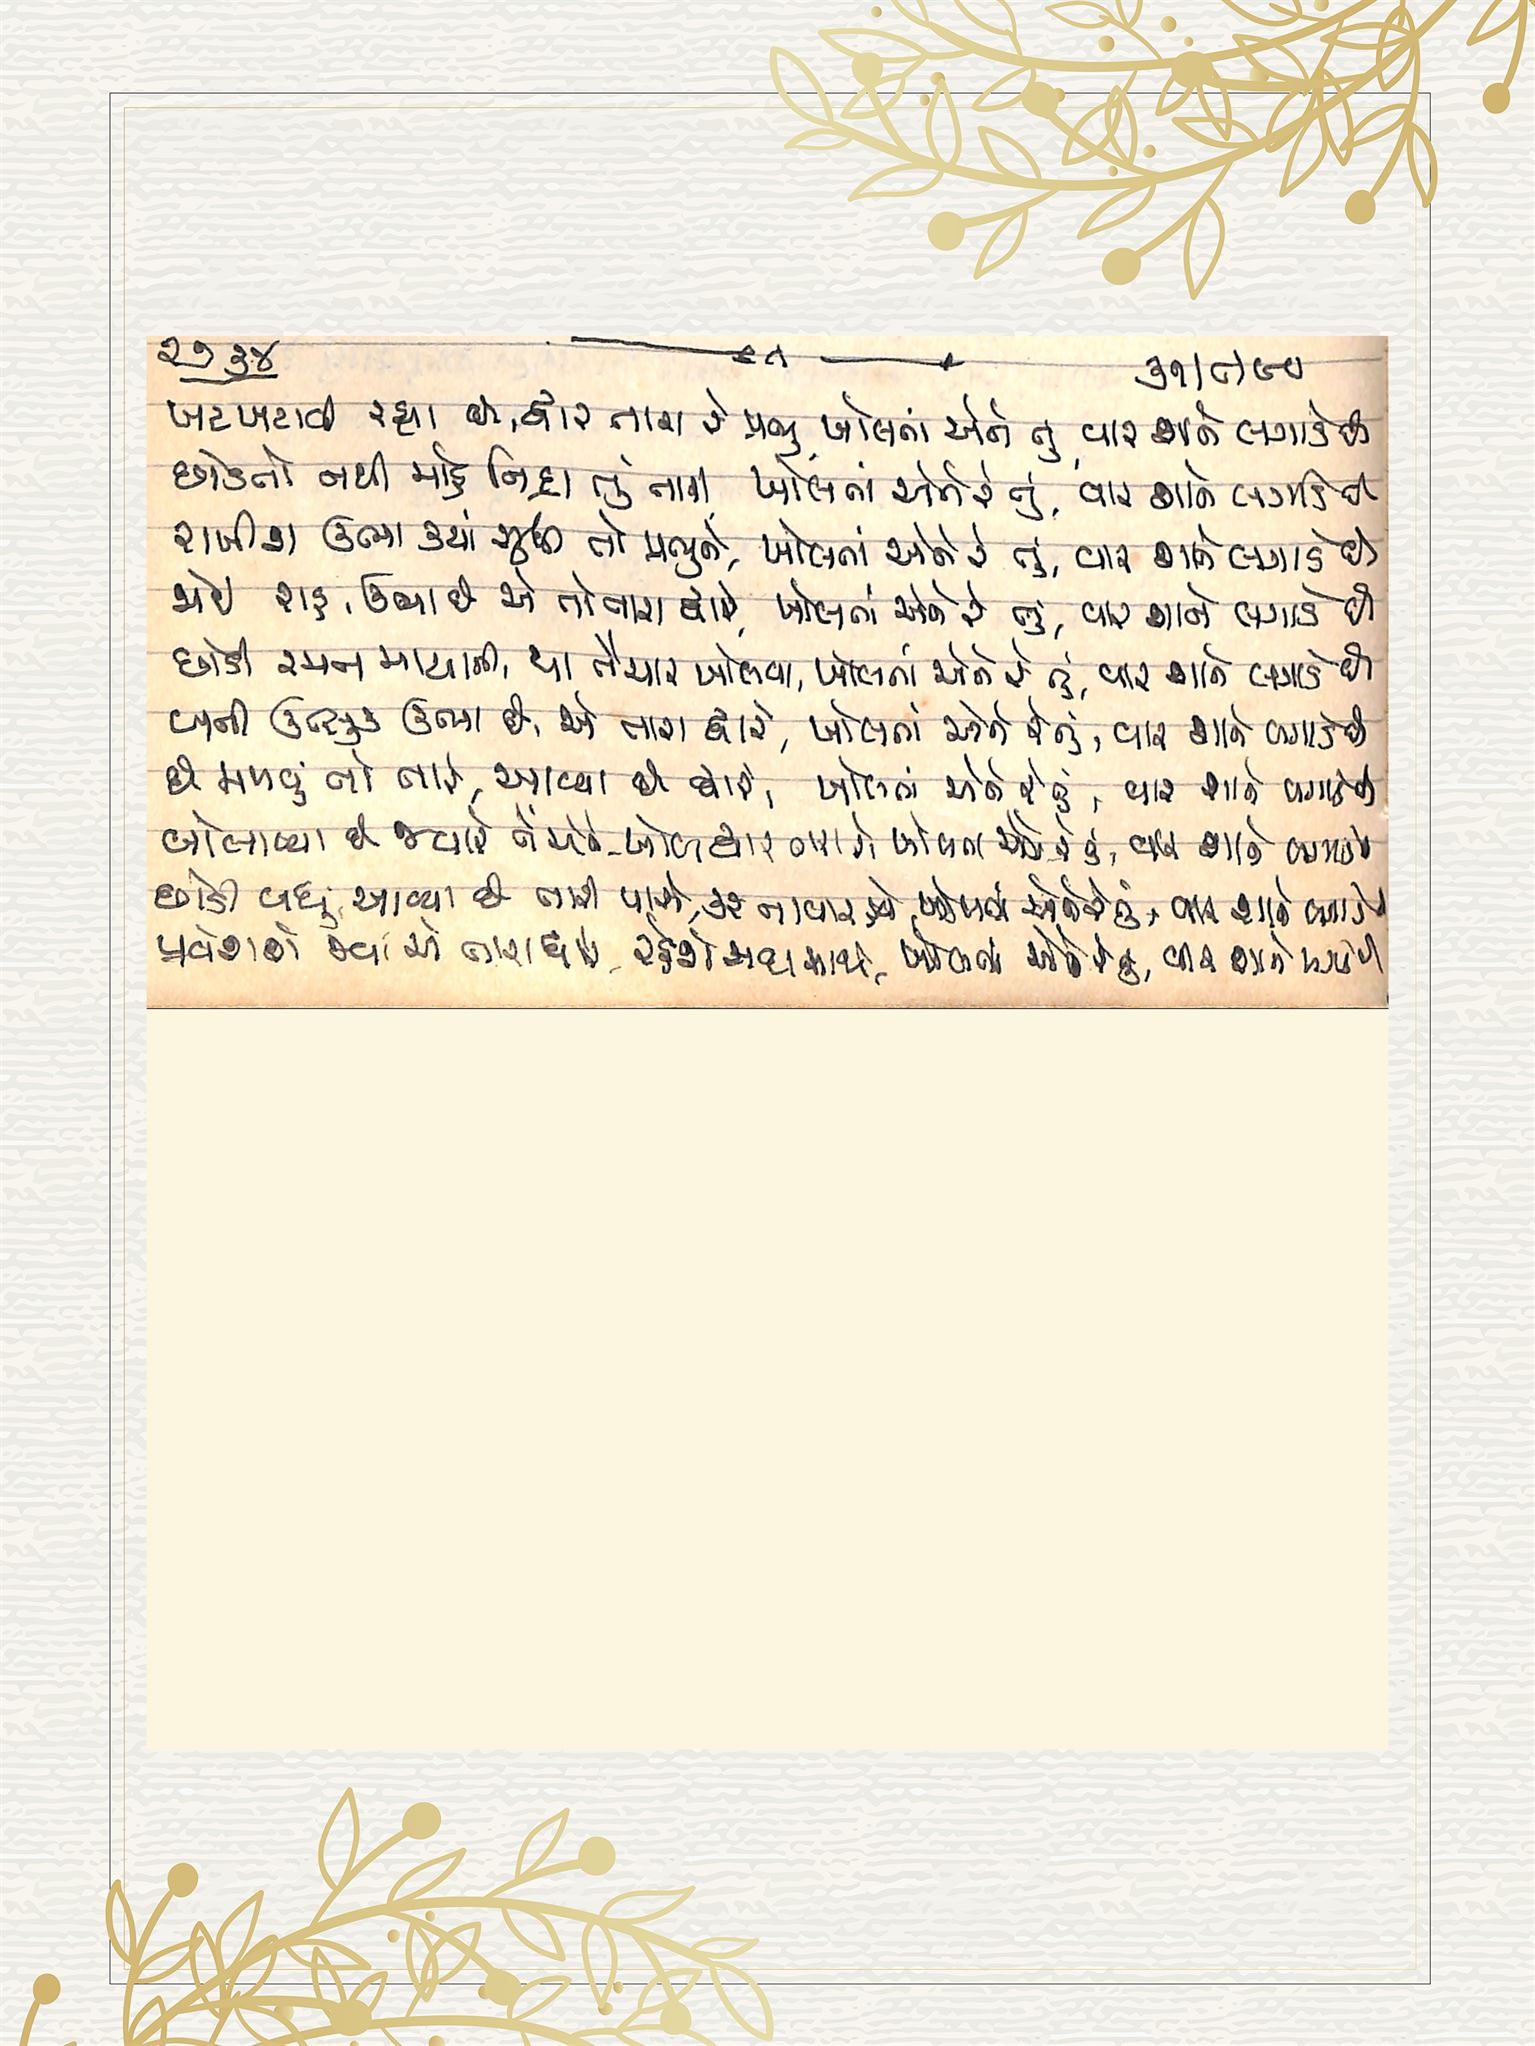 ૨૭૩૪
૩૧/૮/૯૦
ખટખટાવી રહ્યા છે, દ્વાર તારા રે પ્રભુ, ખોલતાં એને તું, વાર શાને લગાડે છે
છોડતો નથી મોહ નિદ્રા તું તારી, ખોલતાં એને રે તું, વાર શાને લગાડે છે
રાખીશ ઉભા ક્યાં સુધી તો પ્રભુને, ખોલતાં એને રે તું, વાર શાને લગાડે છે
જોઈ રાહ, ઉભા છે એ તો તારા દ્વારે, ખોલતાં એને રે તું, વાર શાને લગાડે છે
છોડી રમત માયાની, થા તૈયાર ખોલવા, ખોલતાં એને રે તું, વાર શાને લગાડે છે
બની ઉત્સુક ઉભા છે, એ તારા દ્વારે, ખોલતાં એને રે તું, વાર શાને લગાડે છે
છે મળવું તો તારે, આવ્યા છે દ્વારે, ખોલતાં એને રે તું, વાર શાને લગાડે છે
બોલાવ્યા છે જ્યારે તેં એને, ખોલ દ્વાર તારા રે, ખોલતાં એને રે તું, વાર શાને લગાડે છે
છોડી બધું, આવ્યા છે તારી પાસે, કર ના વાર હવે, ખોલતાં એને રે તું, વાર શાને લગાડે છે
પ્રવેશશે જ્યાં એ તારા, રહેશે સદા સાથે, ખોલતાં એને રે તું, વાર શાને લગાડે છે